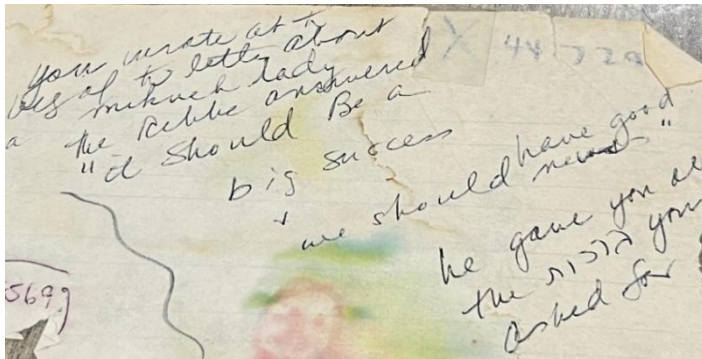 you wrote at t
beg of t letter about
a mikveh lady
the Rebbe answered
"it should Be a
big success
+
we should have good
news"
he gave you al
the ברכות you
asked for
X 44 72a
569